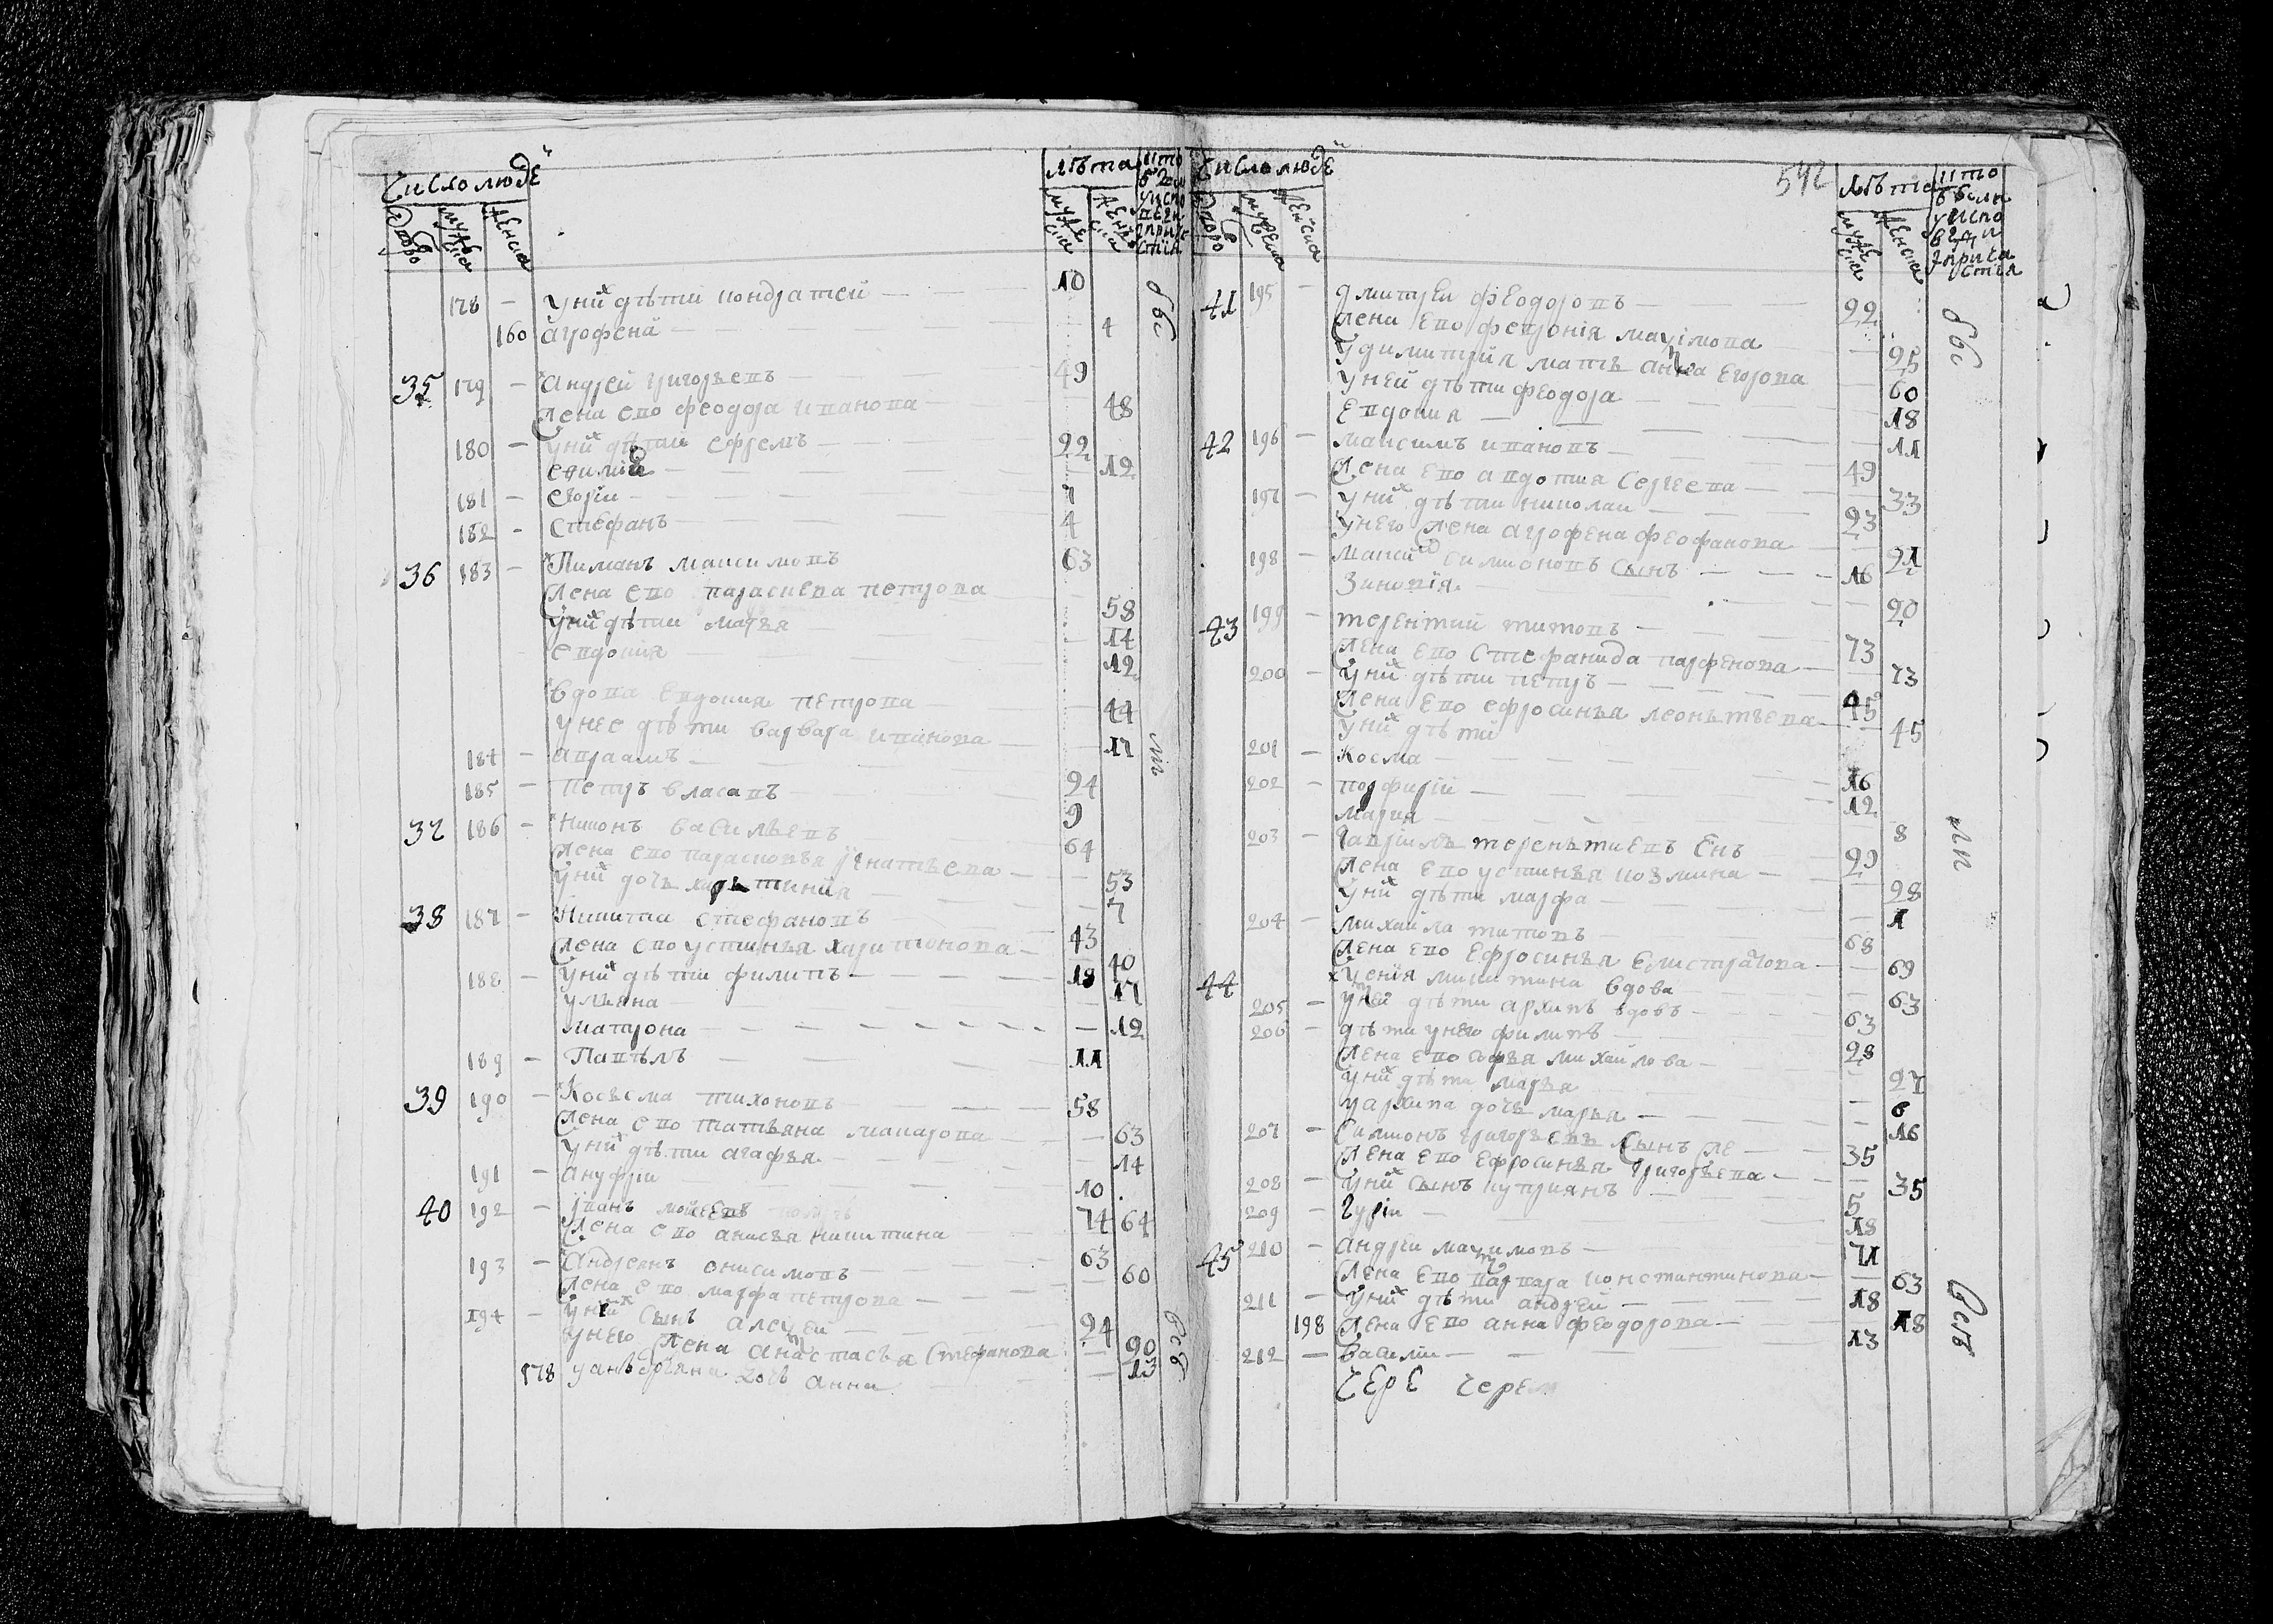 Число людей
Дворо
мужеска
женска
лѣта
мужеска
женска
178 — у них дѣти кондратей — 10
160 агрофена — 4
35 179 — Андрей григорьевъ — 49
жена ево феодора иванова — 48
180 — у них дѣти ефремъ — 22
евдокия — 12
181 — егоріи — 7
182 — стефанъ — 4
36 183 — Пиманъ максимовъ 63
жена ево параскева петрова 58
у них дѣти марья 14
евдокия — 12
вдова евдокия петрова — 44
у нее дѣти варвара иванова — 17
184 — авраамъ — 24
185 — петръ власавъ — 9
37 186 — Никонъ васильевъ 64
жена ево парасковья игнатьева — 53
у них дочь харьтиния — 7
38 187 — Никита стефановъ — 43
жена ево устинья харитонова — 40
188 — у них дѣти филипъ — 18
ульяна — 17
матрона — 12
189 — Павѣлъ — 11
39 190 — Косьма тихоновъ — 58
жена ево татьяна макарова — 63
у них дѣти агафья — 14
191 — ануфріи — 10
40 192 — іванъ 74
жена ево анисья никитина 64
193 — Андреянъ онисимовъ — 63
жена ево марфа петрова — 60
194 — у них сынъ алексей — 24
у него жена анастасья стефанова — 20
178 у анъдреяна дочь анна — 13
Число людей
542
Дворо
мужеска
женска
лѣта
мужеска
женска
41 195 — дмитреи феодоровъ — 22
жена ево феврония максимова — 25
у димитрия мать анна егорова — 60
у ней дѣти феодора — 18
евдокия — 11
42 196 — максимъ ивановъ — 49
жена ево авдотия сергеева — 33
197 — у них дѣти николаи — 23
у него жена агрофена феофанова — 21
198 — симионовъ сынъ — 16
Зиновия — 20
43 199 — терентий титовъ — 73
жена ево стефанида парфенова — 73
200 — у них дѣти петръ — 45
жена ево ефросинья леонътьева — 45
у них дѣти
201 — Косма — 16
202 — порфирій — 12
мария — 8
203 — гавріилъ теренътиевъ снъ 29
жена ево устинья козмина — 28
у них дѣти марфа — 1
204 — михайла титовъ — 68
жена ево ефросинья евистратова — 69
44 ксения микитина вдова — 63
205 — у ней дѣти архипъ вдовъ — 63
206 — дѣти у него филипъ — 28
жена ево софья михайлова — 27
у них дѣти марья — 6
у архипа дочь марья — 16
207 — Симионъ григорьевъ сынъ же — 35
жена ево ефросинья григорьева — 35
208 — у них сынъ куприянъ — 5
209 — гуріи — 18
45 210 — андріи максимовъ — 71
жена ево варвара константинова — 63
211 — у них дѣти андрей — 18
198 жена ево анна феодорова — 18
212 — василіи — 13
чере черем